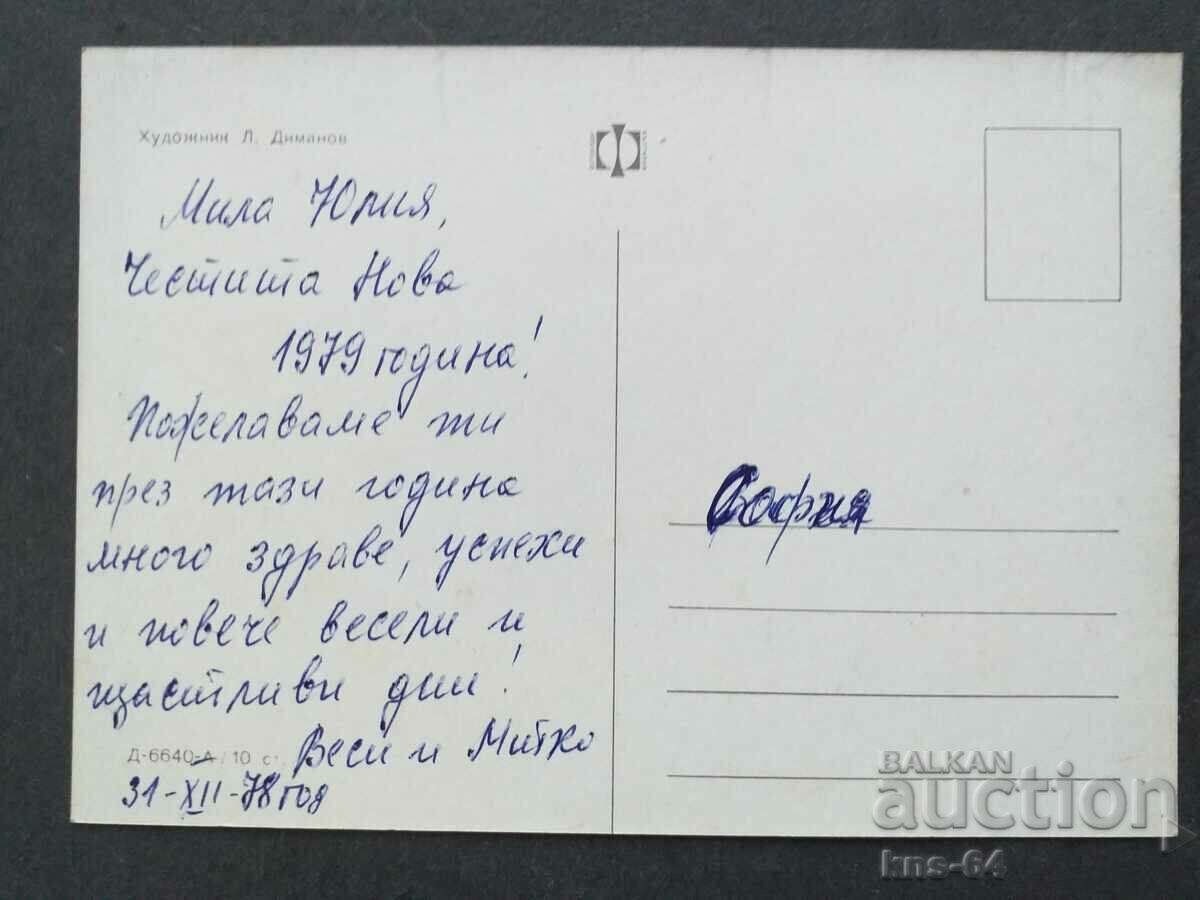 Художник Л. Диманов
Мила Юлия,
Честита Нова
1979 година!
Пожелаваме ти
през тази година
много здраве, успехи
и повече весели и
щастливи дни!
Веси и Митко
Д-6640-А / 10 с
31-XII-78 год
София
BALKAN
auction
kns-64